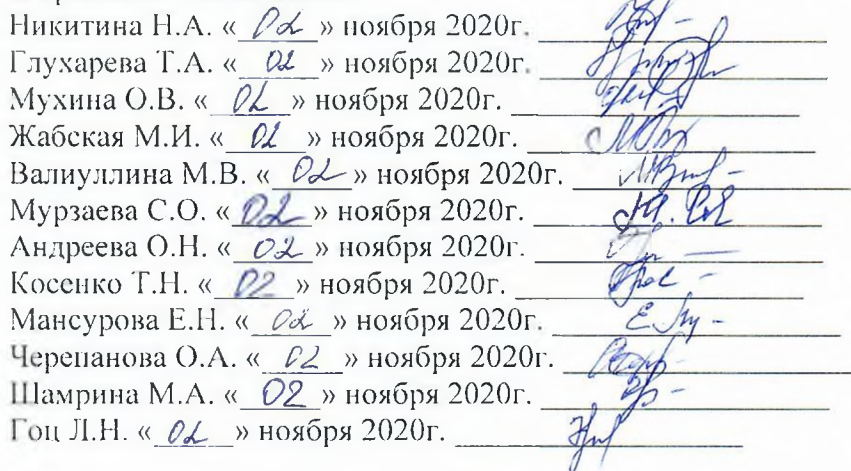 Никитина Н.А. « 02 » ноября 2020г.
Глухарева Т.А. « 02 » ноября 2020г.
Мухина О.В. « 02 » ноября 2020г.
Жабская М.И. « 02 » ноября 2020г.
Валиуллина М.В. « 02 » ноября 2020г.
Мурзаева С.О. « 02 » ноября 2020г.
Андреева О.Н. « 02 » ноября 2020г.
Косенко Т.Н. « 02 » ноября 2020г.
Мансурова Е.Н. « 02 » ноября 2020г.
Черепанова О.А. « 02 » ноября 2020г.
Шамрина М.А. « 02 » ноября 2020г.
Гоц Л.Н. « 02 » ноября 2020г.